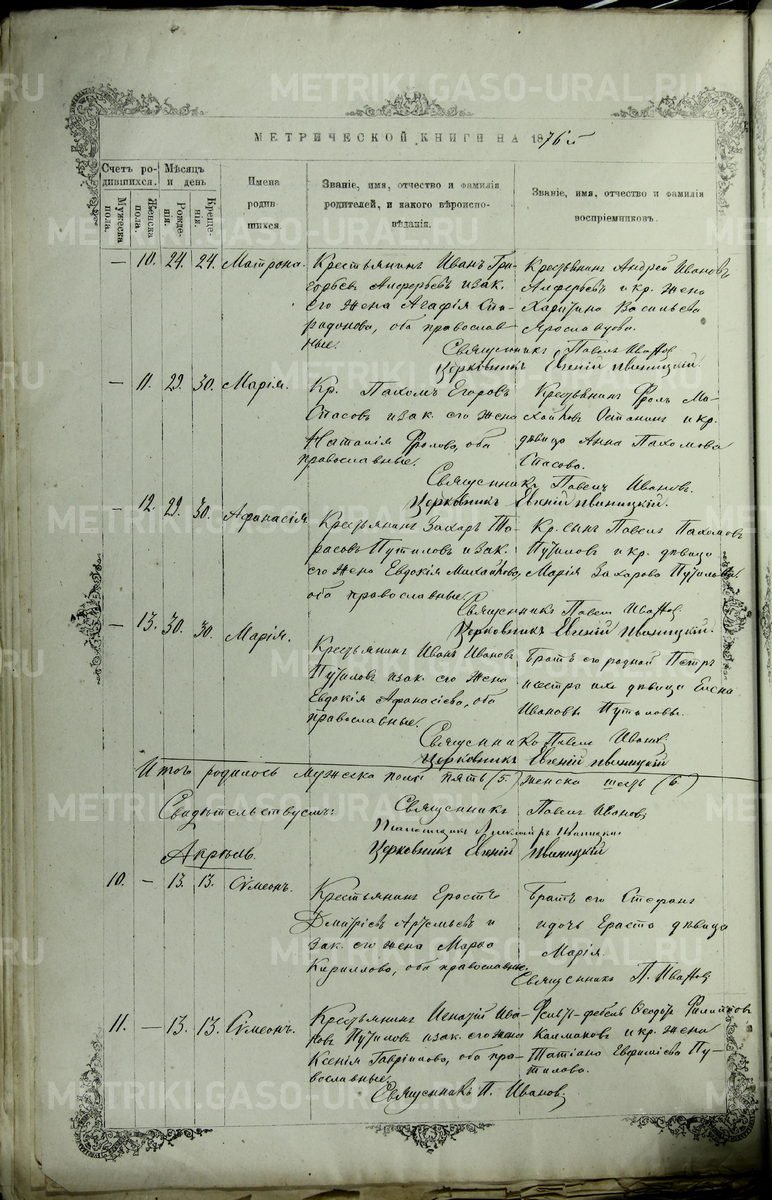 МЕТРИЧЕСКОЙ КНИГИ НА 1876й
Счетъ ро-
дившихся.
Мужеска пола.
Женска пола.
Мѣсяцъ
и день
Рожде-
нія.
Креще-
нія.
Имена
родив-
шихся.
Званіе, имя, отчество и фамилія
родителей, и какого вѣроиспо-
вѣданія.
Званіе, имя, отчество и фамилія
воспріемниковъ.
— 10. 24. 24. Матрона.
Крестьянинъ Иванъ Гри-
горьевъ Алферьевъ и зак.
его жена Агафія Спи-
ридонова, оба православ-
ные.
Крестьянинъ Андрей Ивановъ
Алферьевъ и кр. жена
Харитина Васильева
Священникъ Павелъ Ивановъ
Церковникъ Евгеній Ивиницкій.
— 11. 29. 30. Марія.
Кр. Пахомъ Егоровъ
Спасовъ и зак. его жена
Наталія Фролова, оба
православные.
Крестьянинъ Фролъ Ми-
хайловъ Останинъ и кр.
дѣвица Анна Пахомова
Спасова.
Священникъ Павелъ Ивановъ.
Церковникъ Евгеній Ивиницкій.
— 12. 29. 30. Афанасія.
Крестьянинъ Захаръ Та-
расовъ Путиловъ и зак.
его жена Евдокія Михайлова,
оба православные.
Кр. сынъ Павелъ Пахомовъ
Путиловъ и кр. дѣвица
Марія Захарова Путилова.
Священникъ Павелъ Ивановъ
Церковникъ Евгеній Ивиницкій.
— 13. 30. 30. Марія.
Крестьянинъ Иванъ Ивановъ
Путиловъ и зак. его жена
Евдокія Афанасіева, оба
православные.
Братъ его родной Петръ
и сестра ихъ дѣвица Елена
Ивановы Путиловы.
Священникъ Павелъ Ивановъ
Церковникъ Евгеній Ивиницкій
Итого родилось мужеска пола пять (5.) женска шесть (6.)
Свидѣтельствуемъ: Священникъ Павелъ Ивановъ
Церковникъ Евгеній Ивиницкій
Апрѣль.
10. — 13. 13. Сѵмеонъ.
Крестьянинъ Ерастъ
Дмитріевъ Артемьевъ и
зак. его жена Марѳа
Кириллова, оба православные.
Братъ его Стефанъ
и дочь Ераста дѣвица
Марія.
Священникъ П. Ивановъ
11. — 13. 13. Сѵмеонъ.
Крестьянинъ Игнатій Ива-
новъ Путиловъ и зак. его жена
Ксенія Гавріилова, оба пра-
вославные.
Фельд-фебель Ѳеодоръ Филипповъ
Калмаковъ и кр. жена
Татіана Евфиміева Пу-
тилова.
Священникъ П. Ивановъ.
METRIKI.GASO-URAL.RU